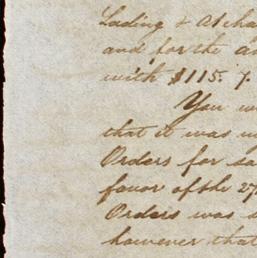 Lading &
and for the
with $115.
You
that it was
Orders for
favor of the 27
Orders was
however that